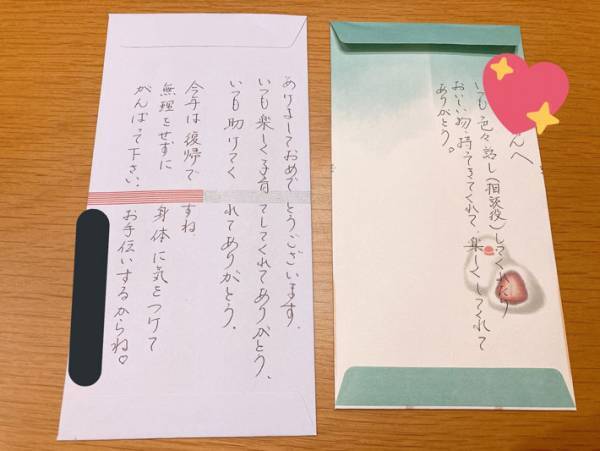 んへ
いつも色々話し(相談役)してくれたり
おいしい物、持ってきてくれて 楽しくしてくれて
ありがとう。
あけましておめでとうございます。
いつも楽しく子育てしてくれてありがとう。
いつも助けてくれてありがとう。
今年は復帰ですね
無理をせずに 身体に気をつけて
がんばって下さい。お手伝いするからね♡